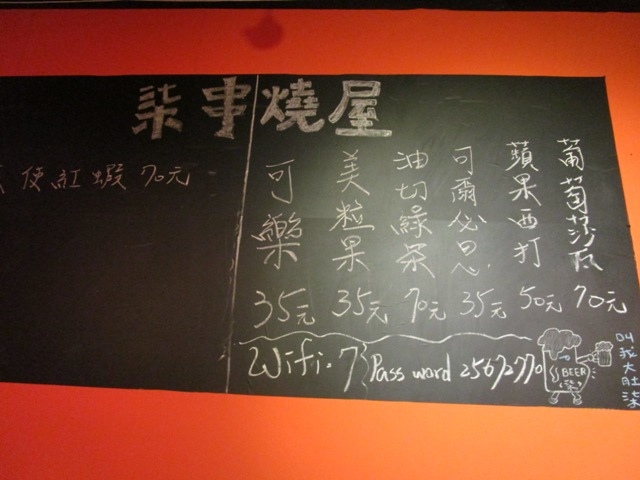 柒串燒屋
使紅蝦 70元
可樂 35元
美粒果 35元
油切綠茶 70元
可爾必思 35元
蘋果西打 50元
葡萄莎瓦 70元
Wifi. 7
Pass ward 25672770
BEER
柒
叫我大肚柒